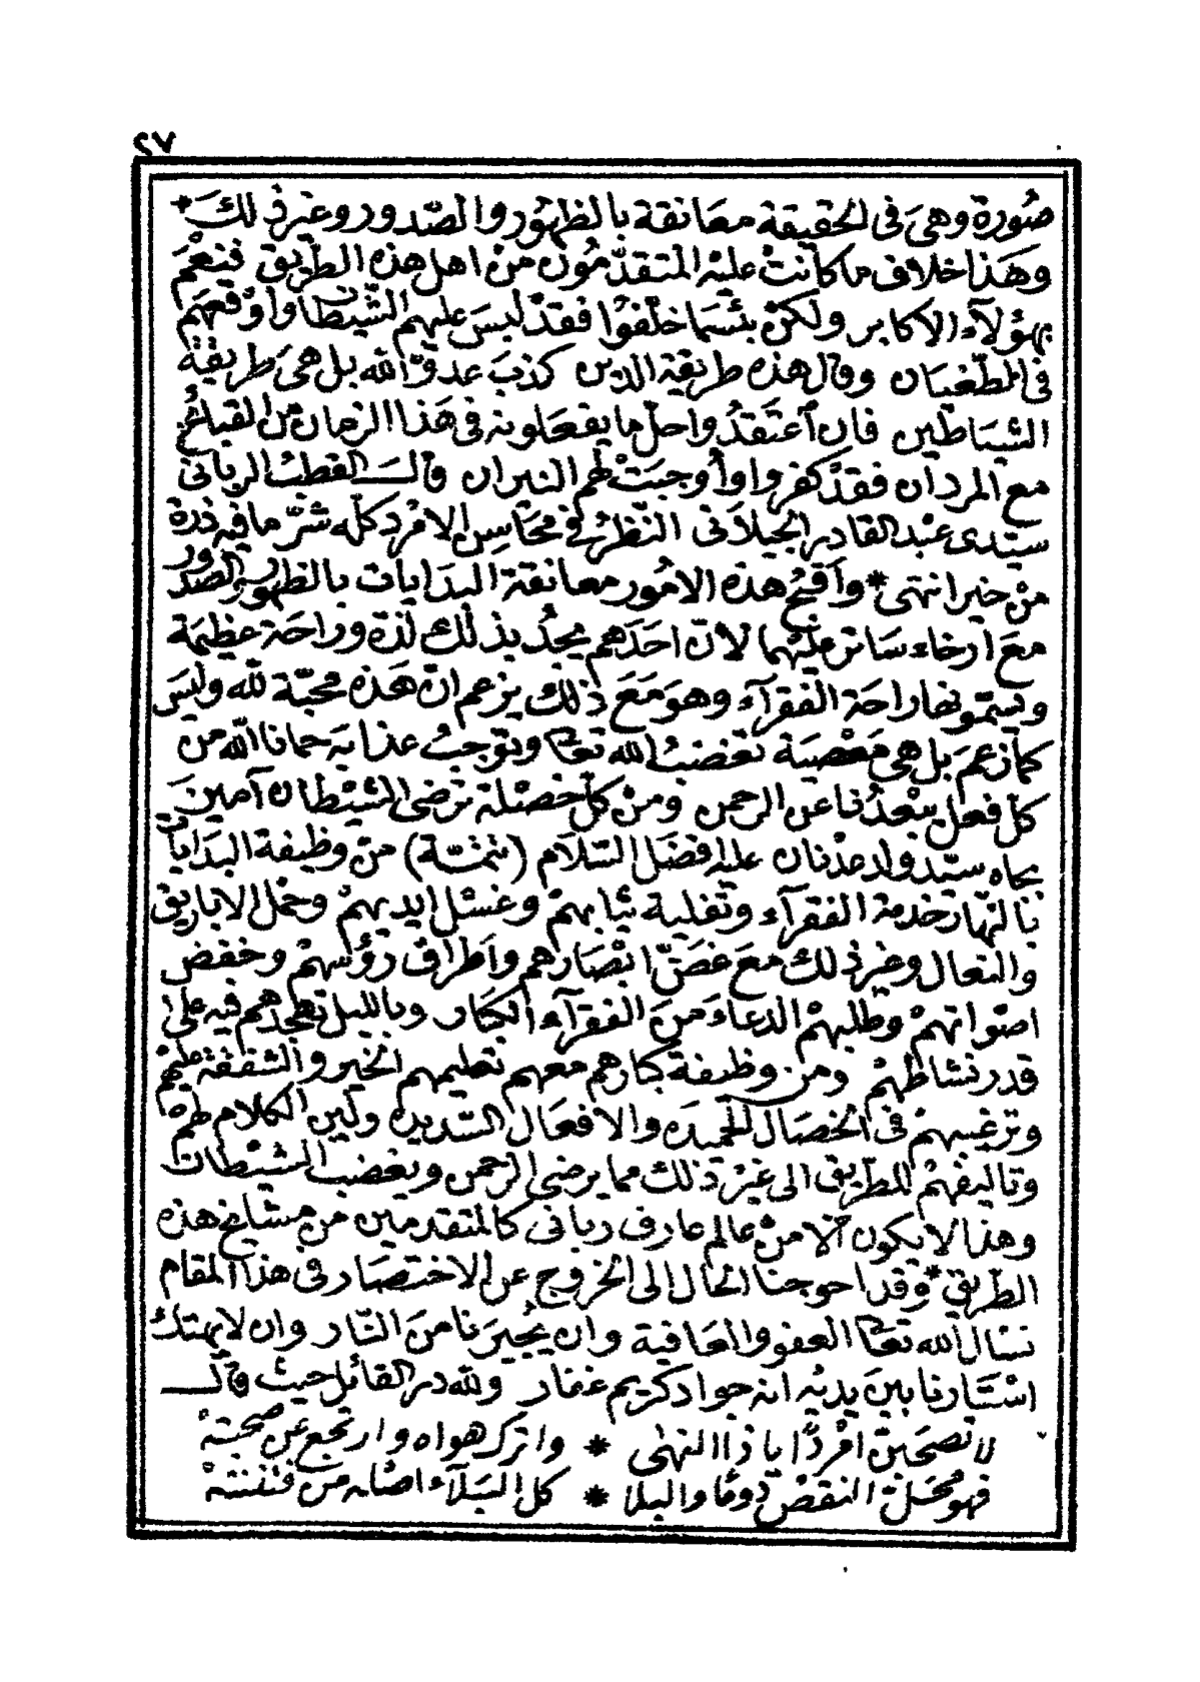 ٢٧
صُورة وهىَ فى الحقيقة معَانقة بالظهُور والصّدور وغير ذلكَ *
وهَذا خلاف ما كانتْ عليْه المتقدّمُون منْ اهل هذه الطريق فنِعْمَ
بهؤلآء الاكابر ولكنْ بئسَما خلّفوُا فقدْ لبسَ عليهم الشّيْطان واوْقعهم
فى الطّغيَان وقال هذه طريقة الدين كذبَ عدوّ الله بل هىَ طريقة
الشيَاطين فان اعتَقدُوا حلّ ما يفعَلونه فى هَذا الزمان من القبائح
مع المردان فقدْ كفروا وأوجبَتْ لهم النيران قالَ القطبُ الربانى
سيّدى عبْد القادر الجيلانى النّظرُ فى محَاسِن الامْرد كلّه شرّ ما فيه ذرة
منْ خير انتهى * وأقبَح هذه الامُور معانقة البدَايات بالظهور والصدور
معَ ارخاء سَاتر عليْهما لأنّ احَدَهم يجدُ بذلك لذة وراحَة عظيمَة
ويسَمّونها راحَة الفقرآء وهوَ معَ ذلك يزعم انّ هَذه محبّة لله وليسَ
كمَا زعمَ بل هى مَعْصيَة تغضبُ الله تعالى وتوجبُ عذابَه حمانا الله من
كلّ فعل يبْعدُنا عن الرحمن ومنْ كلّ خصْلة ترْضى الشيْطان آمينَ
بجاه سيّد ولد عدْنان عليه افضَل السّلام (تتمّة) منْ وظيفة البدَايات
بالنّهار خدمة الفقرآء وتفلية ثيابهمْ وغسْل ايديهمْ وحَمْل الاباريق
والنعال وغير ذلك معَ غضّ ابْصَارهم واَطراف رؤسهمْ وخفض
اصْواتهمْ وطلبهمُ الدعاءَ منَ الفقرآء الكبَار وبالليل تهجدهم فيه على
قدر نشاطهمْ ومن وظيفة كبارهم معهم تعليمهم الخير والشفقة عليهم
وترغيبهمْ فى الخصَال الحميدَه والافعَال السّديده ولين الكلام لهم
وتاليفهُمْ للطريق الى غيْر ذلك مما يرضى الرحمن ويغضب الشيْطان
وهذا لا يكون الّا منْ عالم عارف ربانى كالمتقدمين من مشايخ هذه
الطريق * وقد احوجنا الحَال الى الخروج عن الاختصَار فى هذا المقام
نسْال الله تعالى العفو والعَافية وان يُجيرَنا منَ النّار وان لا يهتك
اسْتَارنا بينَ يديْه انه جواد كريم غفار ولله در القائل حيث قالَ
لا تصْحَبَنّ امْردًا يا ذا النهٰى * واترك هواه وارتجع عن صُحبتِهْ
فهو مُحَلّ النقصْ دومًا والبلا * كل البَلآء اصْله من فتنتِهْ